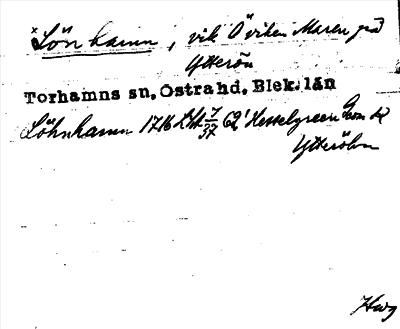 *Lönhamn, vik Ö viken Maren på
Ytterön
Torhamns sn, Östra hd, Blek. län
Löhnhamn 1716 LMt 7/37 62' Hesselgreen Geom de
Ytteröhn